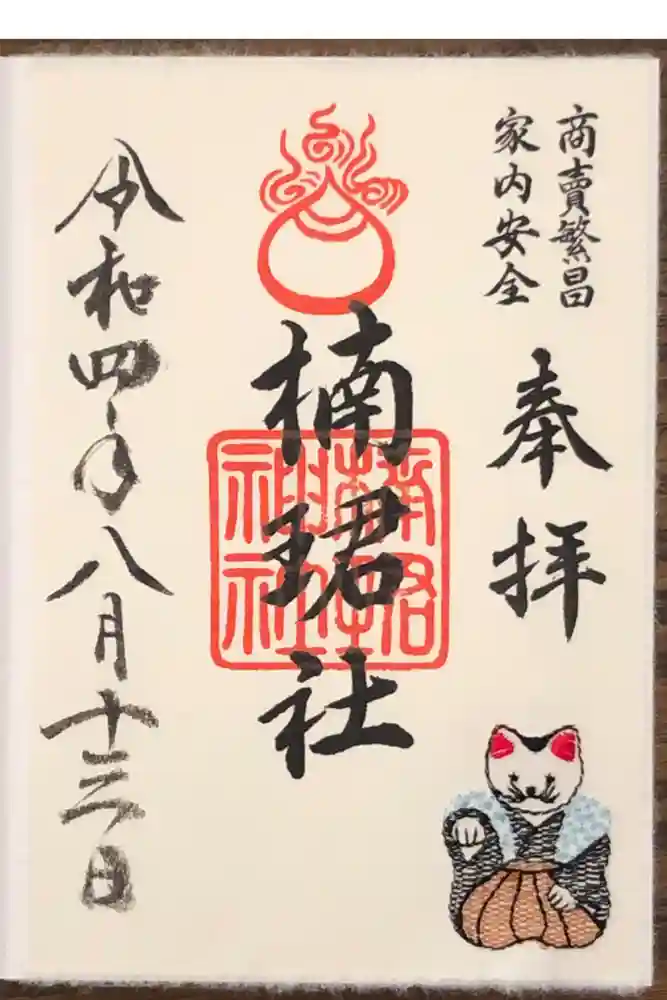 商賣繁昌
家内安全
奉拝
楠珺社
令和四年八月十三日